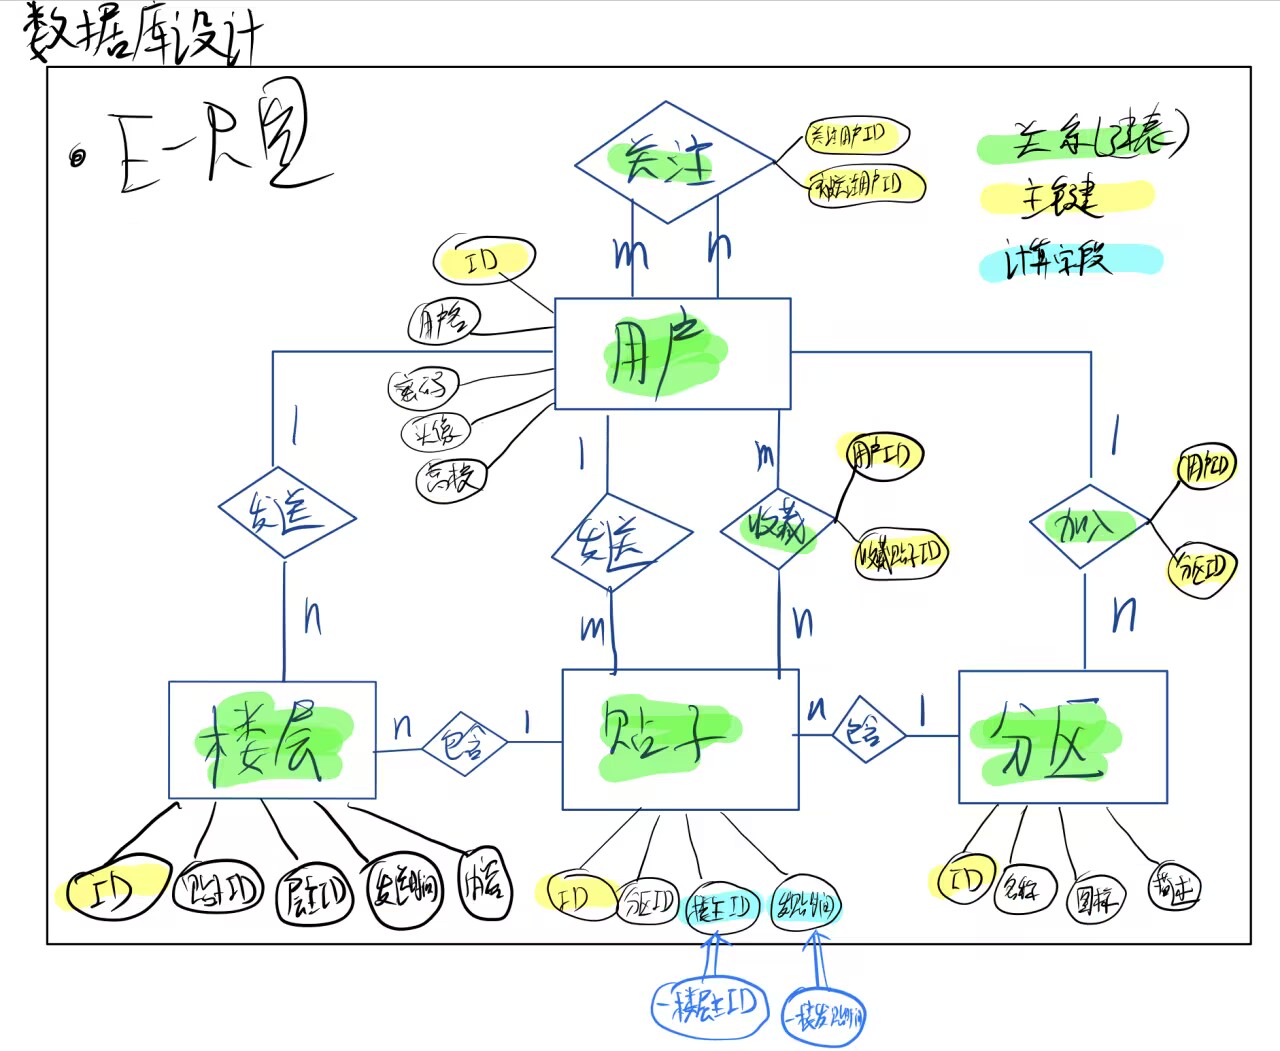 数据库设计
E-R图
关系(建表)
主键
计算字段
关注
关注用户ID
被关注用户ID
m
n
ID
用户名
密码
头像
高校
用户
1
1
m
1
用户ID
用户ID
发送
发送
收藏
收藏贴子ID
加入
分区ID
n
m
n
n
楼层
n
包含
1
贴子
n
包含
1
分区
ID
贴子ID
层主ID
发送时间
内容
ID
分区ID
楼主ID
发贴时间
ID
名称
图标
简述
一楼层主ID
一楼发贴时间